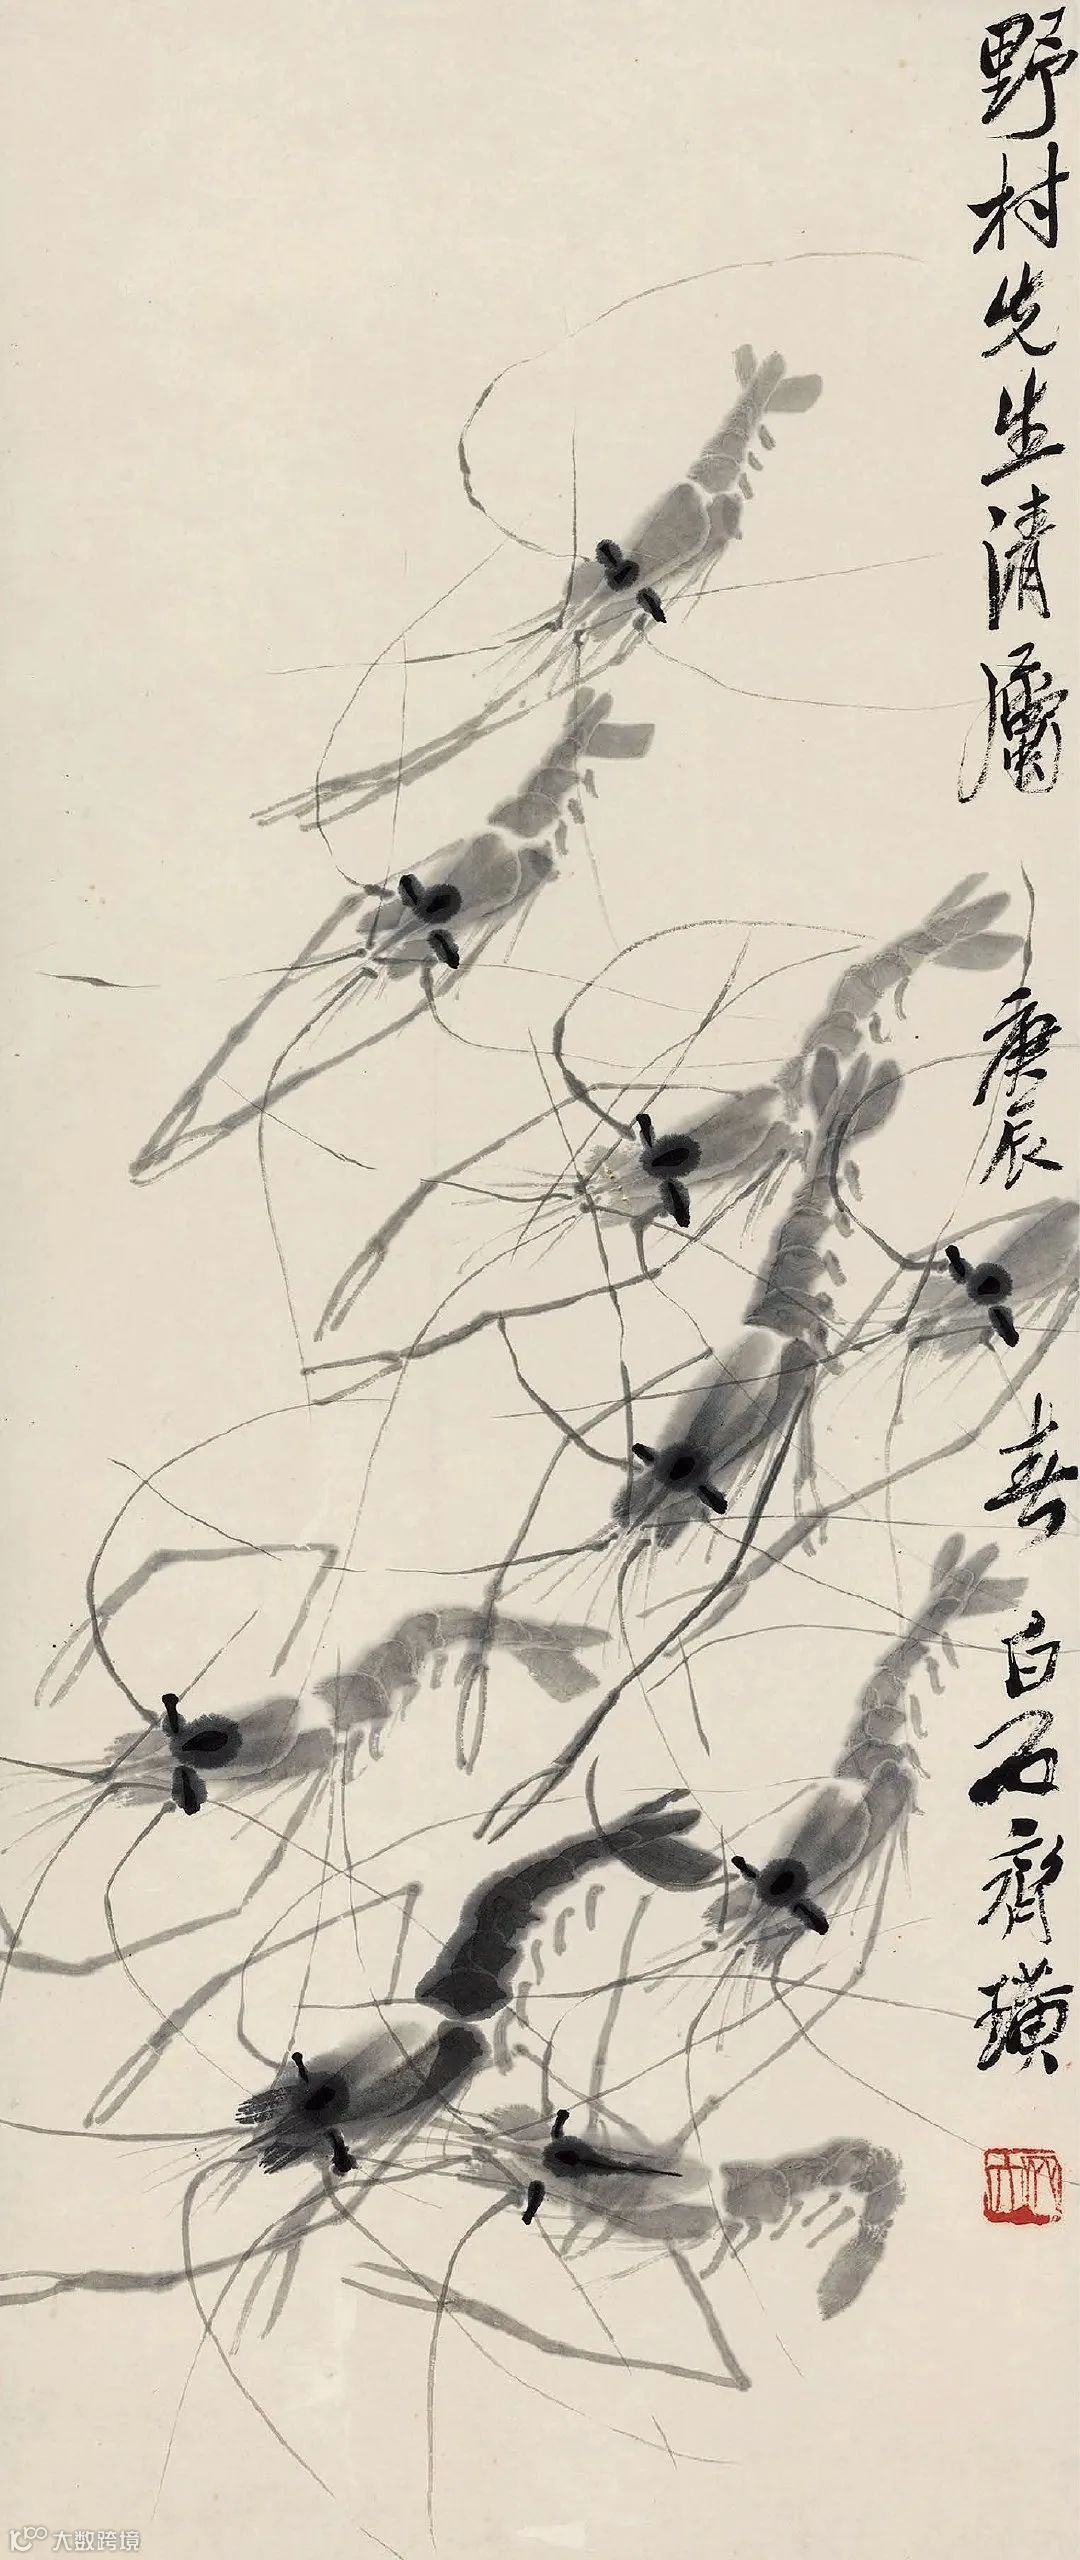 野村先生清屬 庚辰 春 白石齊璜
大数跨境